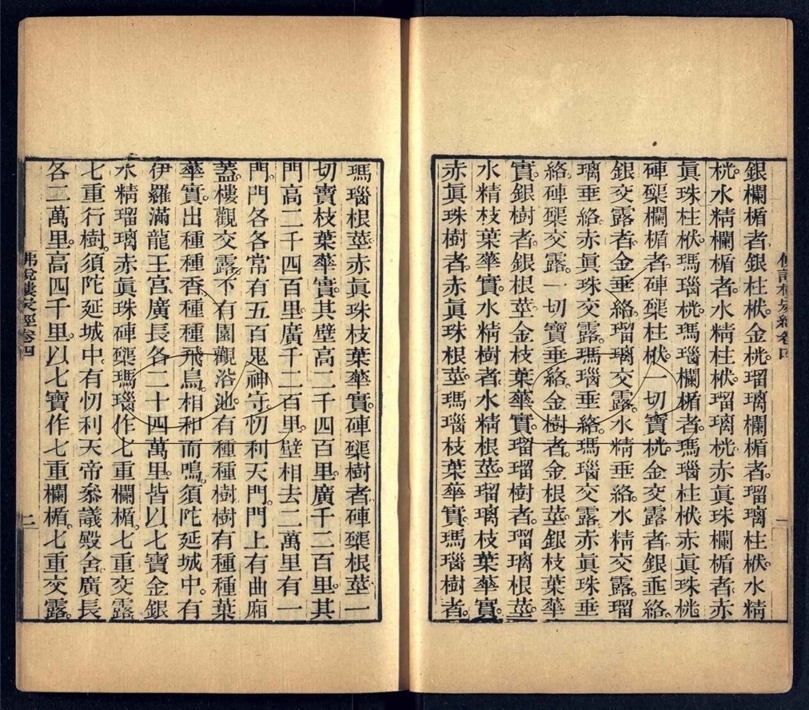 銀欄楯者銀柱栿金桄瑠璃欄楯者瑠璃柱栿水精
桄水精欄楯者水精柱栿瑠璃桄赤眞珠欄楯者赤
眞珠柱栿瑪瑙桄瑪瑙欄楯者瑪瑙柱栿赤眞珠桄
硨磲欄楯者硨磲柱栿一切寶桄金交露者銀垂絡
銀交露者金垂絡瑠璃交露水精垂絡水精交露瑠
璃垂絡赤眞珠交露瑪瑙垂絡瑪瑙交露赤眞珠垂
絡硨磲交露一切寶垂絡金樹者金根莖銀枝葉華
實銀樹者銀根莖金枝葉華實瑠璃樹者瑠璃根莖
水精枝葉華實水精樹者水精根莖瑠璃枝葉華實
赤眞珠樹者赤眞珠根莖瑪瑙枝葉華實瑪瑙樹者
瑪瑙根莖赤眞珠枝葉華實硨磲樹者硨磲根莖一
切寶枝葉華實其壁高二千四百里廣千二百里其
門高二千四百里廣千二百里壁相去二萬里有一
門門各各常有五百鬼神守忉利天門門上有曲廂
蓋樓觀交露下有園觀浴池有種種樹樹有種種葉
華實出種種香種種飛鳥相和而鳴須陀延城中有
伊羅滿龍王宮廣長各二十四萬里皆以七寶金銀
水精瑠璃赤眞珠硨磲瑪瑙作七重欄楯七重交露
七重行樹須陀延城中有忉利天帝叅議殿舍廣長
各二萬里高四千里以七寶作七重欄楯七重交露
佛說樓炭經卷四
二